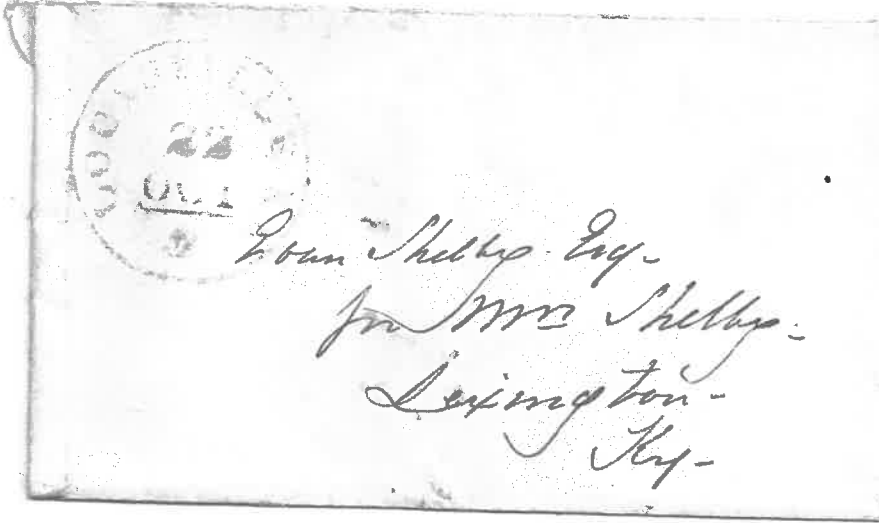 22
OCT
Evan Shelby Esq-
for Mrs Shelby-
Lexington-
Ky-